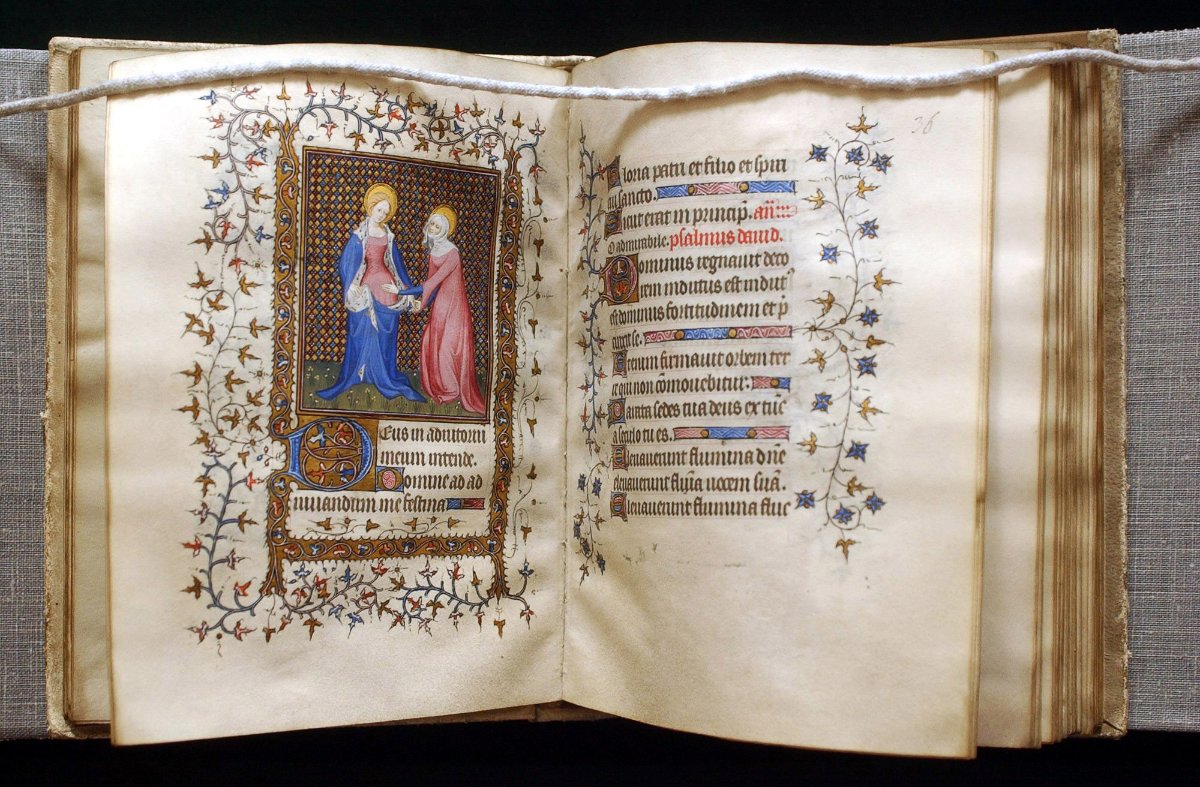 Deus in adiutoriū
meum intende.
Domine ad ad
iuuandum me festina
36
Gloria patri et filio et spiri
tui sancto.
Sicut erat in principῖ. añ
O admirabile. psalmus dauid.
Dominus regnauit deco
rem indutus est indut'
est dominus fortitudinem et p̄
cinxit se.
Etenim firmauit orbem ter
re qui non cōmouebitur.
Parata sedes tua deus ex tūc
a seculo tu es.
Eleuauerunt flumina dn̄e
eleuauerunt flum̄ia uocem suā.
Eleuauerunt flumina fluc